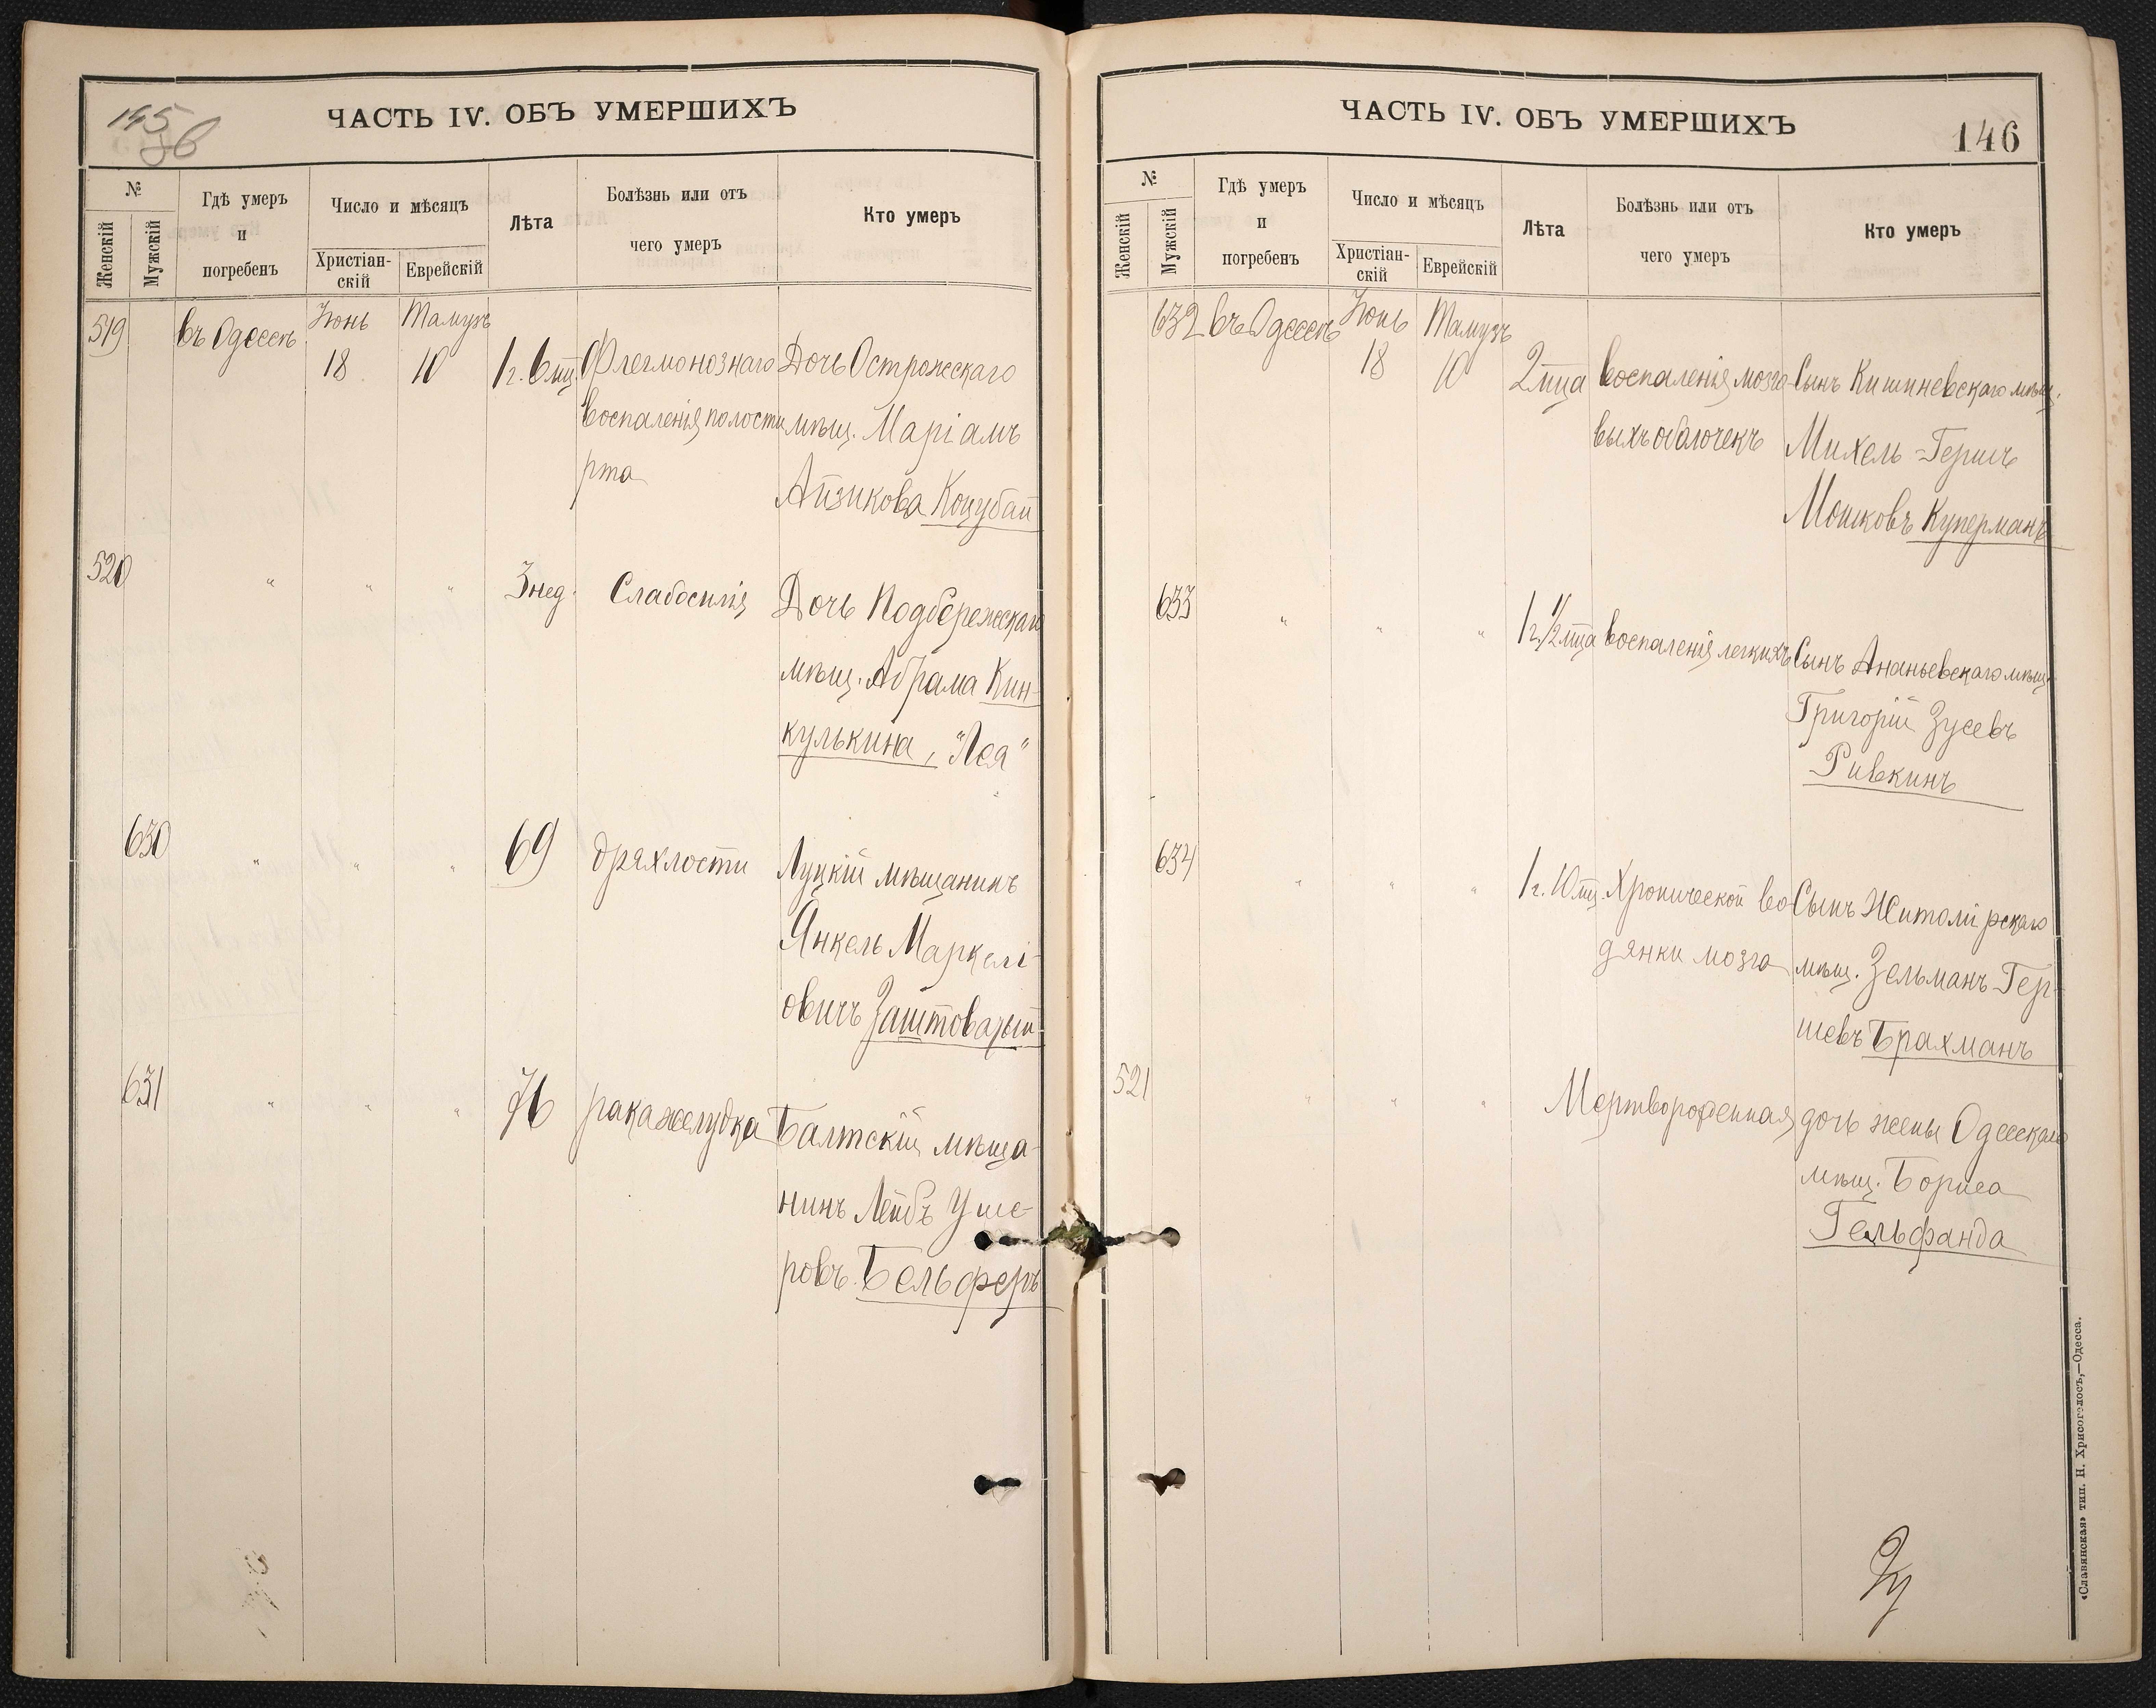 145
ЧАСТЬ IV. ОБЪ УМЕРШИХЪ
№
Женскій
Мужскій
Гдѣ умеръ
и
погребенъ
Число и мѣсяцъ
Христіан-
скій
Еврейскій
Лѣта
Болѣзнь или отъ
чего умеръ
Кто умеръ
519 въ Одессѣ Іюнь Тамузъ
18 10 1 г. 6 мц. Флегмонознаго Дочь Острожскаго
воспаленія полости мѣщ. Маріамъ
рта Айзикова Коцубай
520 " " " 3 нед. Слабосилія Дочь Подбережскаго
мѣщ. Абрама Кин-
кулькина, "Лея"
630 " " " 69 дряхлости Луцкій мѣщанинъ
Янкель Маркелі-
овичъ Заштоварый
631 " " " 76 рака желудка Балтскій мѣща-
нинъ Лейбъ Уше-
ровъ Бельферъ
ЧАСТЬ IV. ОБЪ УМЕРШИХЪ
146
№
Женскій
Мужскій
Гдѣ умеръ
и
погребенъ
Число и мѣсяцъ
Христіан-
скій
Еврейскій
Лѣта
Болѣзнь или отъ
чего умеръ
Кто умеръ
632 въ Одессѣ Іюнь Тамузъ
18 10 2 мца воспаленія мозго- Сынъ Кишиневскаго мѣщ.
выхъ оболочекъ Михель-Гершъ
Мошковъ Куперманъ
633 " " " 1 г. 1/2 мца воспаленія легкихъ Сынъ Ананьевскаго мѣщ.
Григорій Зусевъ
Ривкинъ
634 " " " 1 г. 10 мц. Хронической во- Сынъ Житомірскаго
дянки мозга мѣщ. Зельманъ Гер-
шевъ Брахманъ
521 " " " Мертворожденная дочь жены Одесскаго
мѣщ. Бориса
Гельфанда
«Славянская» тип. Н. Хрисогелосъ,—Одесса.